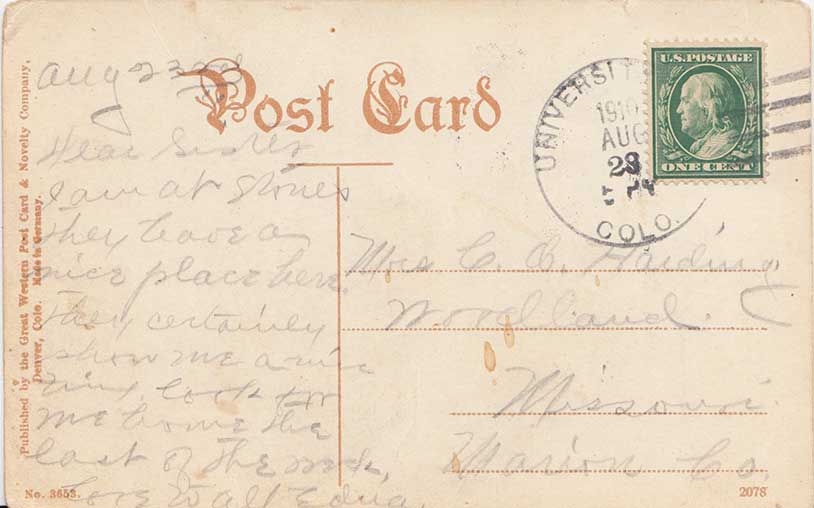 Published by the Great Western Post Card & Novelty Company,
Denver, Colo. Made in Germany.
Post Card
Aug 23rd
Dear Sister
I am at Stones
they have a
nice place here.
They certainly
show me a nice
time, look for
me home the
last of the week,
Love to all Edna.
UNIVERSIT
1910
AUG
23
COLO.
U.S. POSTAGE
ONE CENT
Mrs C. O. Harding,
Woodland.
Missouri.
Marion Co.
No. 3653.
2078